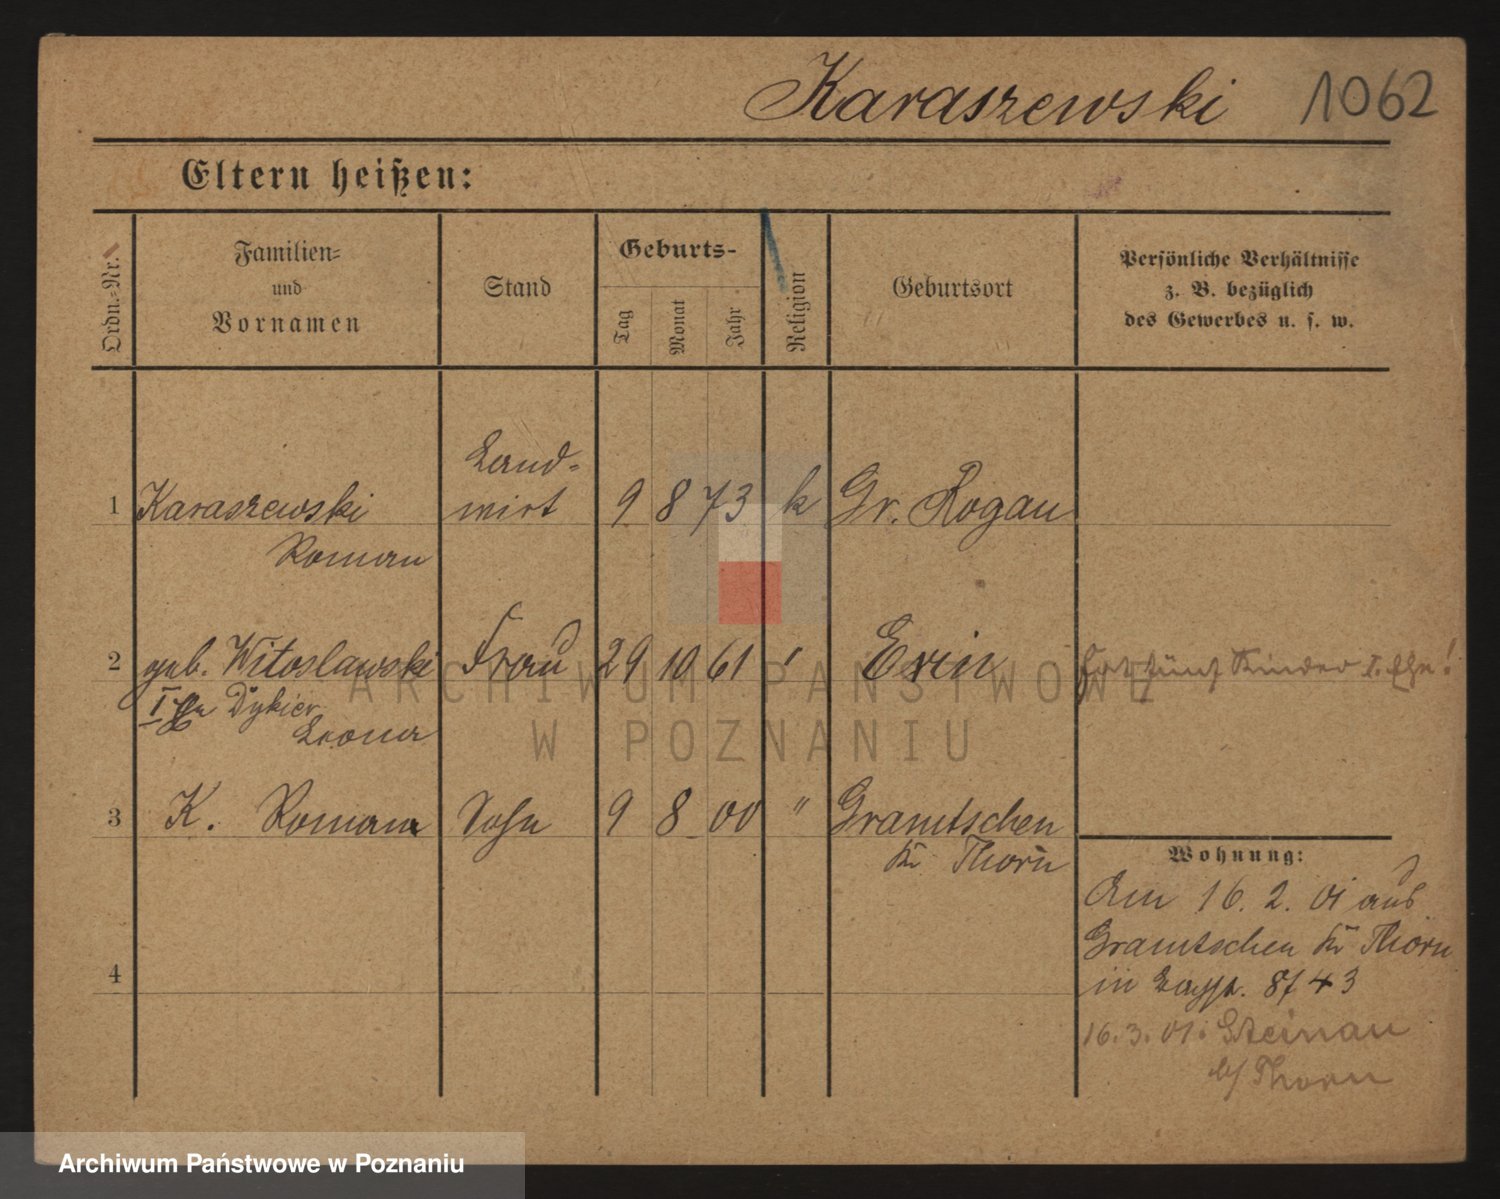 Karaszewski 1062
Eltern heißen:
Ordn.-Nr.
Familien-
und
Vornamen
Stand
Geburts-
Tag
Monat
Jahr
Religion
Geburtsort
Persönliche Verhältnisse
z. B. bezüglich
des Gewerbes u. s. w.
Land-
1 Karaszewski wirt 9 8 73 k Gr. Rogau
Roman
2 geb. Witoslawski Frau 29 10 61 " Exin hat fünf Kinder I. Ehe!
I Ehe Dykier
Leona
3 K. Roman Sohn 9 8 00 " Gramtschen
Kr Thorn
4
Wohnung:
Am 16. 2. 01 aus
Gramtschen Kr Thorn
in 43
16. 3. 01. Steinau
b/ Thorn
ARCHIWUM PAŃSTWOWE
W POZNANIU
Archiwum Państwowe w Poznaniu